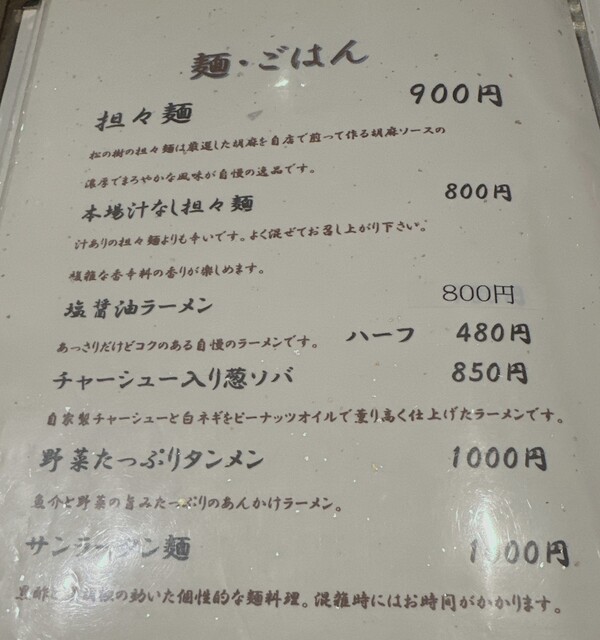 麺・ごはん
担々麺 900円
松の樹の担々麺は厳選した胡麻を自店で煎って作る胡麻ソースの
濃厚でまろやかな風味が自慢の逸品です。
本場汁なし担々麺 800円
汁ありの担々麺よりも辛いです。よく混ぜてお召し上がり下さい。
複雑な香辛料の香りが楽しめます。
塩醤油ラーメン 800円
あっさりだけどコクのある自慢のラーメンです。 ハーフ 480円
チャーシュー入り葱ソバ 850円
自家製チャーシューと白ネギをピーナッツオイルで薫り高く仕上げたラーメンです。
野菜たっぷりタンメン 1000円
魚介と野菜の旨みたっぷりのあんかけラーメン。
サンラータン麺 1000円
黒酢と の効いた個性的な麺料理。混雑時にはお時間がかかります。